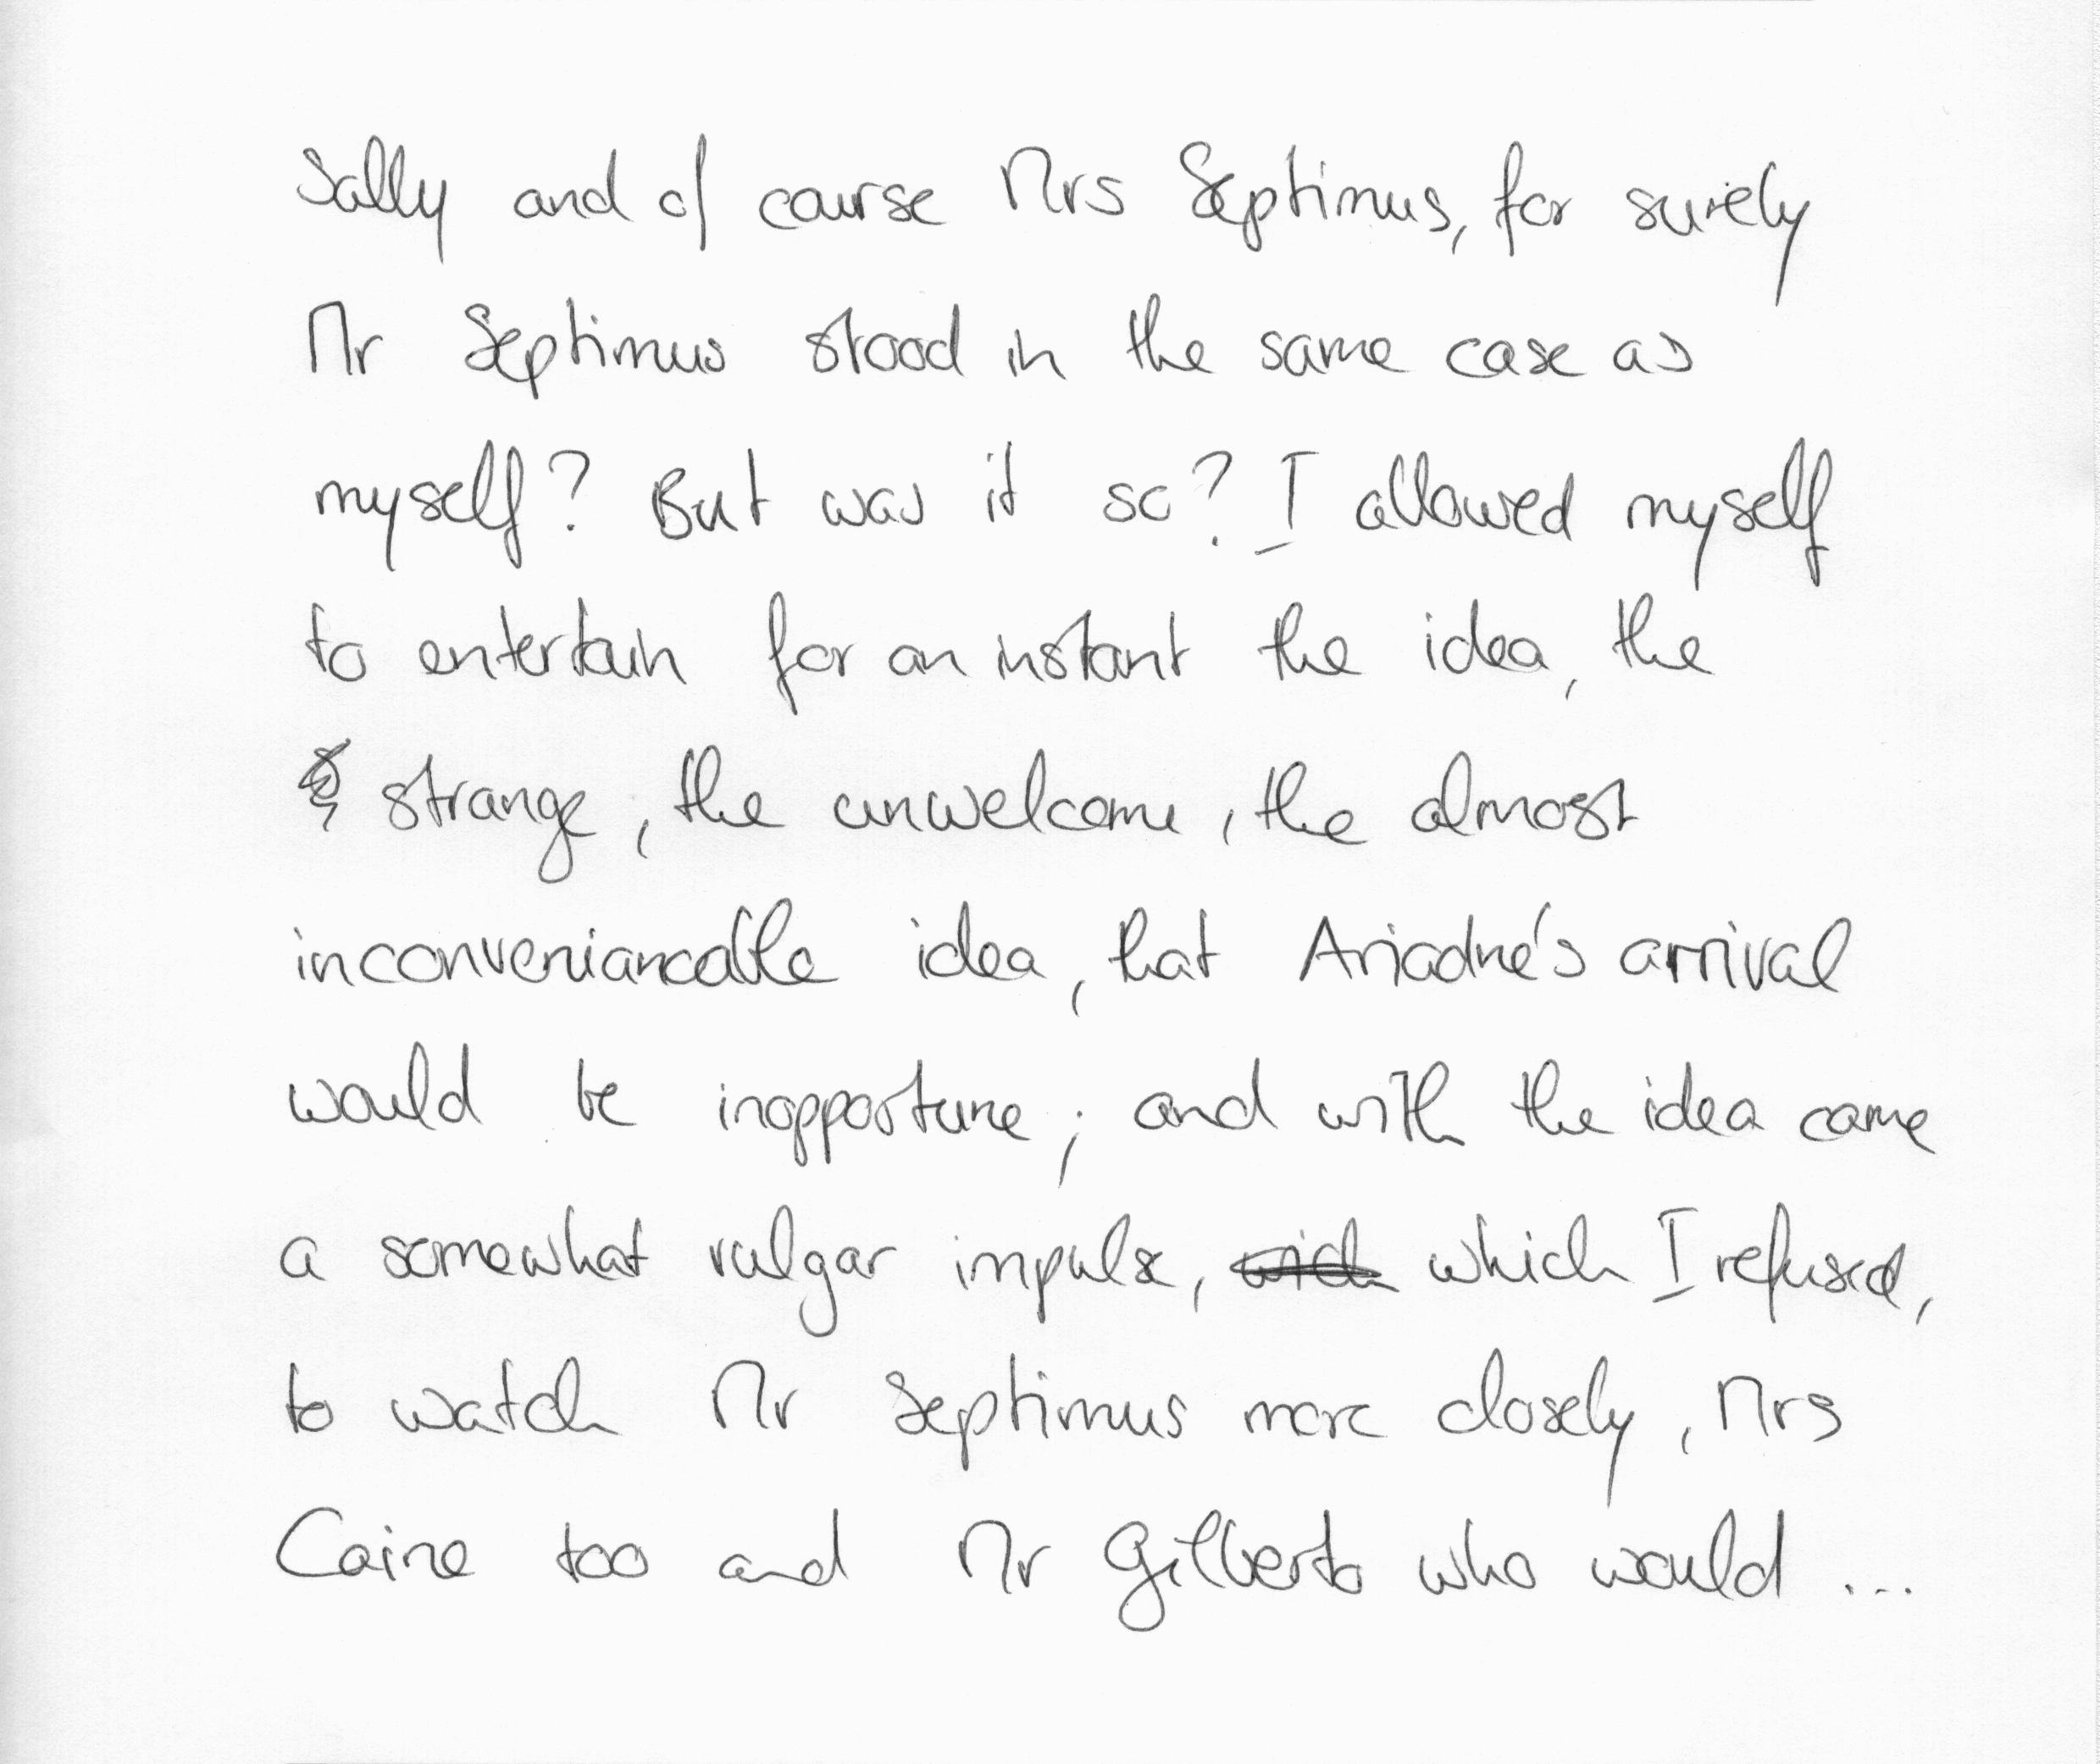 Sally and of course Mrs Septimus, for surely
Mr Septimus stood in the same case as
myself? But was it so? I allowed myself
to entertain for an instant the idea, the
strange, the unwelcome, the almost
inconvenianceable idea, that Ariadne's arrival
would be inopportune; and with the idea came
a somewhat vulgar impulse, which I refused,
to watch Mr Septimus more closely, Mrs
Caine too and Mr Gilberto who would ...